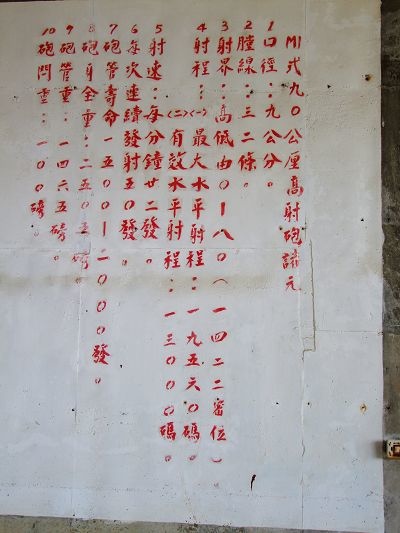 M1式九0公厘高射砲諸元
1口徑：九公分。
2膛線：三二條。
3射界：高低由0－八0（一四二二密位）。
4射程：(一)最大水平射程：一九五六0碼。
(二)有效水平射程：一三000碼。
5射速：每分鐘廿二發。
6每次連續發射五0發。
7砲管壽命一五00－二000發。
8砲身全重：二五0五磅。
9砲管重：一四六五磅。
10砲閂重：一00磅。